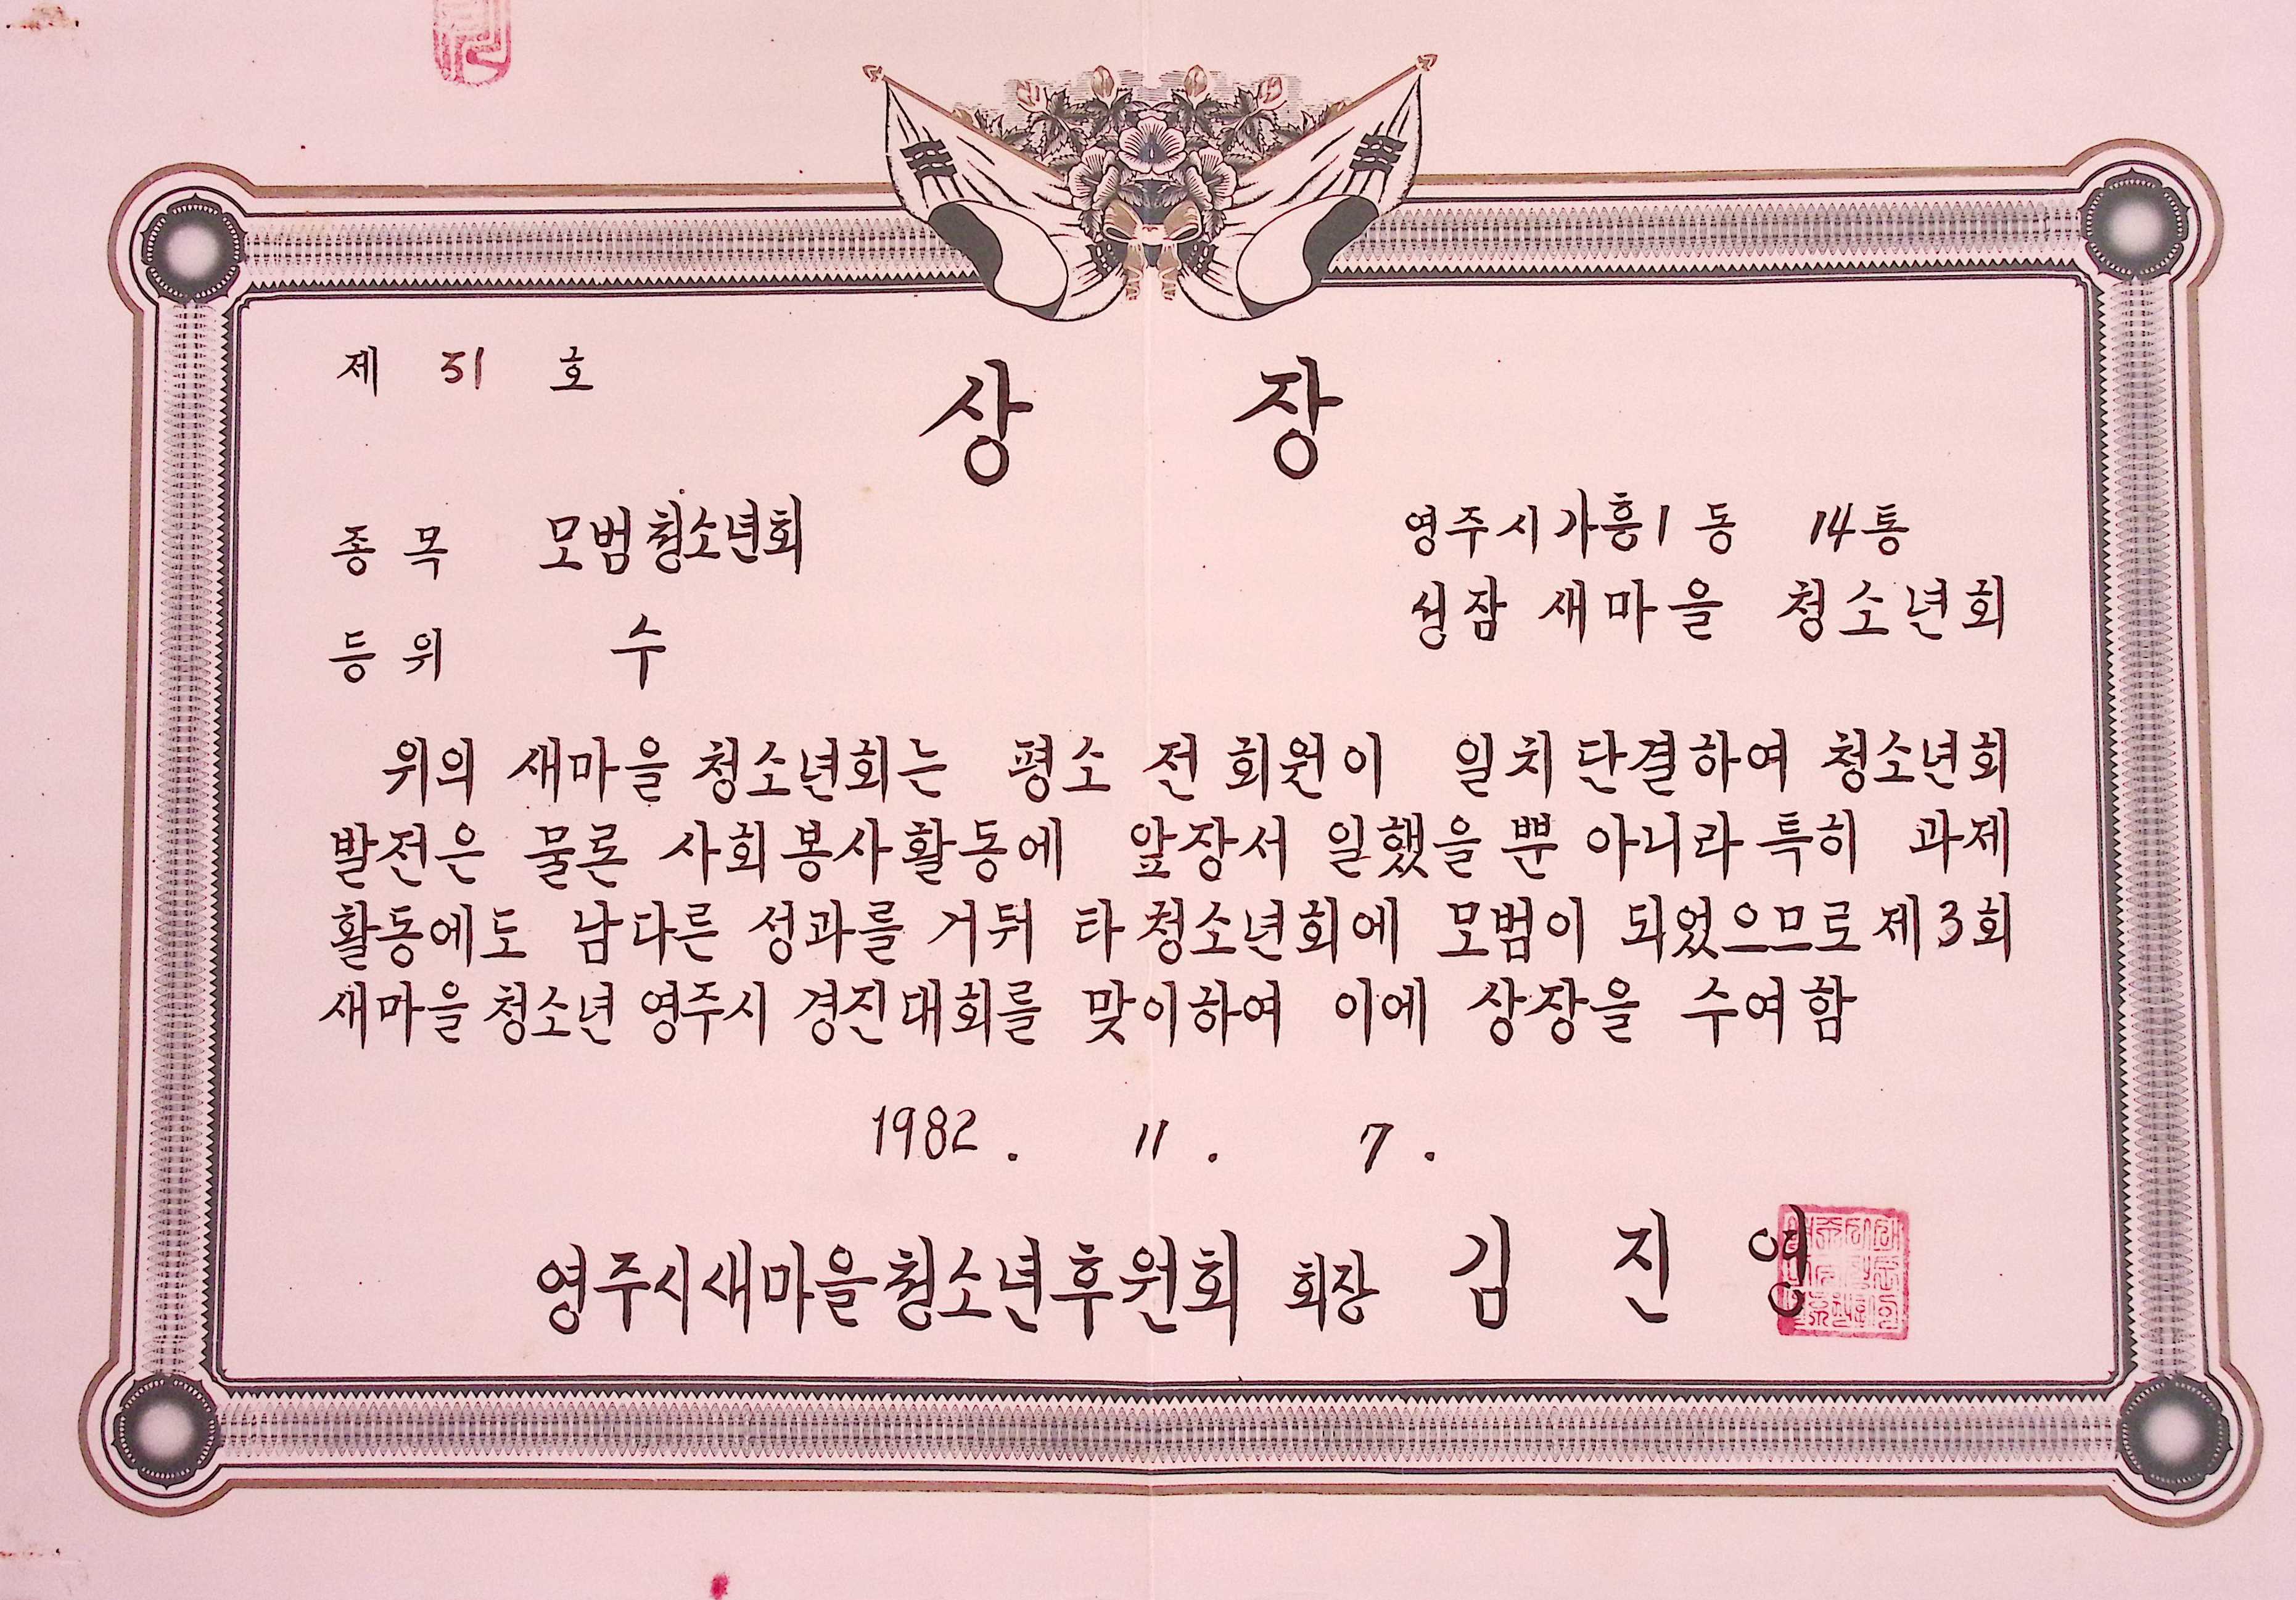 제 31 호
상 장
종 목 모범청소년회
영주시 가흥1동 14통
등 위 수
성잠 새마을 청소년회
위의 새마을 청소년회는 평소 전 회원이 일치단결하여 청소년회
발전은 물론 사회봉사활동에 앞장서 일했을 뿐 아니라 특히 과제
활동에도 남다른 성과를 거둬 타 청소년회에 모범이 되었으므로 제3회
새마을 청소년 영주시 경진대회를 맞이하여 이에 상장을 수여함
1982. 11. 7.
영주시새마을청소년후원회 회장 김 진 영